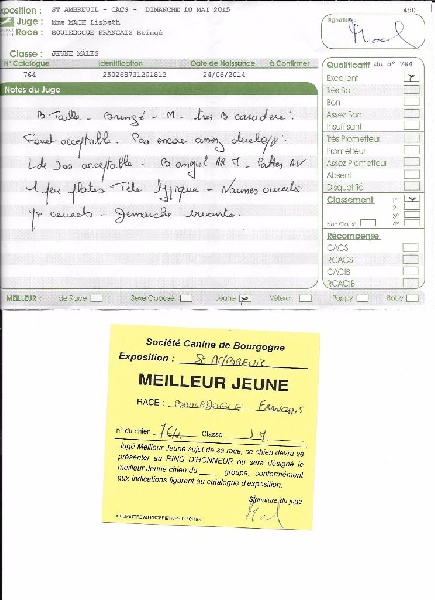 Exposition : ST AMBREUIL - CACS - DIMANCHE 10 MAI 2015
Juge : Mme MACH Lisbeth
Race : BOULEDOGUE FRANCAIS Bringé
Signature
Classe : JEUNE MALES
N° Catalogue Identification Date de Naissance à Confirmer
764 24/08/2014
Notes du Juge
B Taille - Bringé - M. très B caractère.
Foret acceptable. Pas encore assez développé.
L de Dos acceptable - B angul AR - Pattes AV
1 peu plates - Tête typique - Narines ouvertes
Yx ouverts - Démarche
Qualificatif du n° 764
Excellent
Très Bon
Bon
Assez Bon
Insuffisant
Très Prometteur
Prometteur
Assez Prometteur
Absent
Disqualifié
Classement 1er
2e
3e
4e
Récompense
CACS
RCACS
CACIB
RCACIB
MEILLEUR : de Race Sexe Opposé Jeune Vétéran Puppy Baby
Société Canine de Bourgogne
Exposition : St AMBREUIL
MEILLEUR JEUNE
RACE : BOULEDOGUE FRANCAIS
n° du chien 764 Classe JM
Jugé Meilleur Jeune sujet de sa race, ce chien devra se
présenter au RING D'HONNEUR où sera désigné le
meilleur jeune chien du groupe, conformément
aux indications figurant au catalogue d'exposition.
Signature du juge